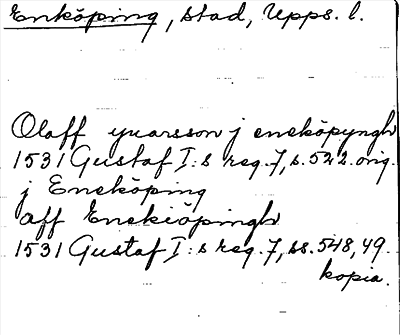 Enköping, stad, Upps. l.
Olaff ynarsson j encköpyngh
1531 Gustaf I:s reg. 7, s. 522. orig.
j Eneköping
aff Enekiöpingh
1531 Gustaf I:s reg. 7, ss. 548, 49.
kopia.